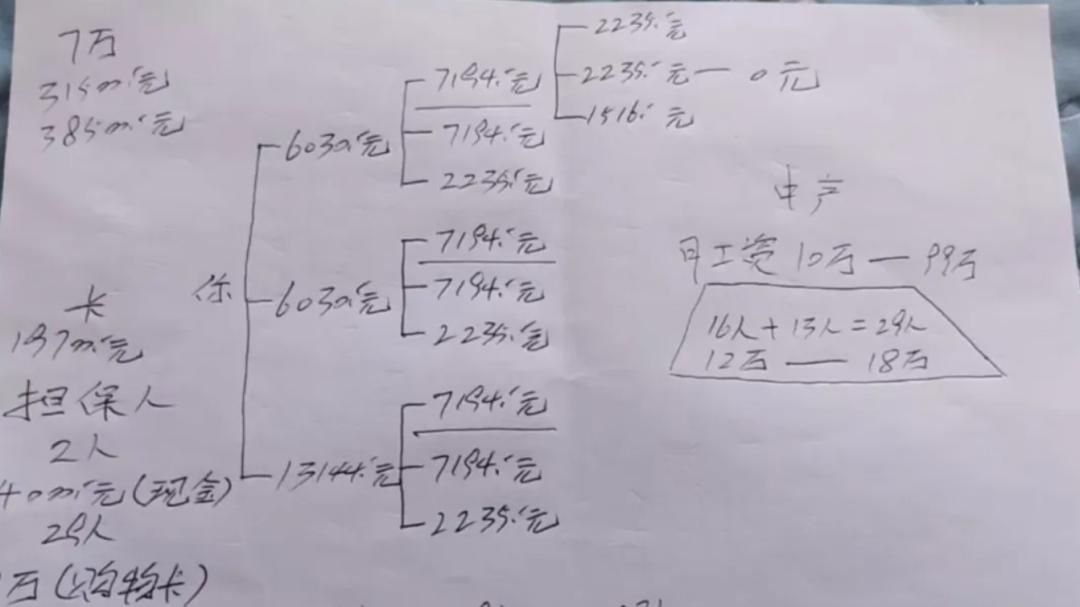 7万
31500.元
38500.元
卡
19700.元
担保人
2人
4000.元(现金)
29人
万(购物卡)
你
6030.元
7194.元
7194.元
2235.元
2235.元
2235.元—0元
1516.元
6030.元
7194.元
7194.元
2235.元
13144.元
7194.元
7194.元
2235.元
中产
月工资10万—99万
16人+13人=29人
12万—18万